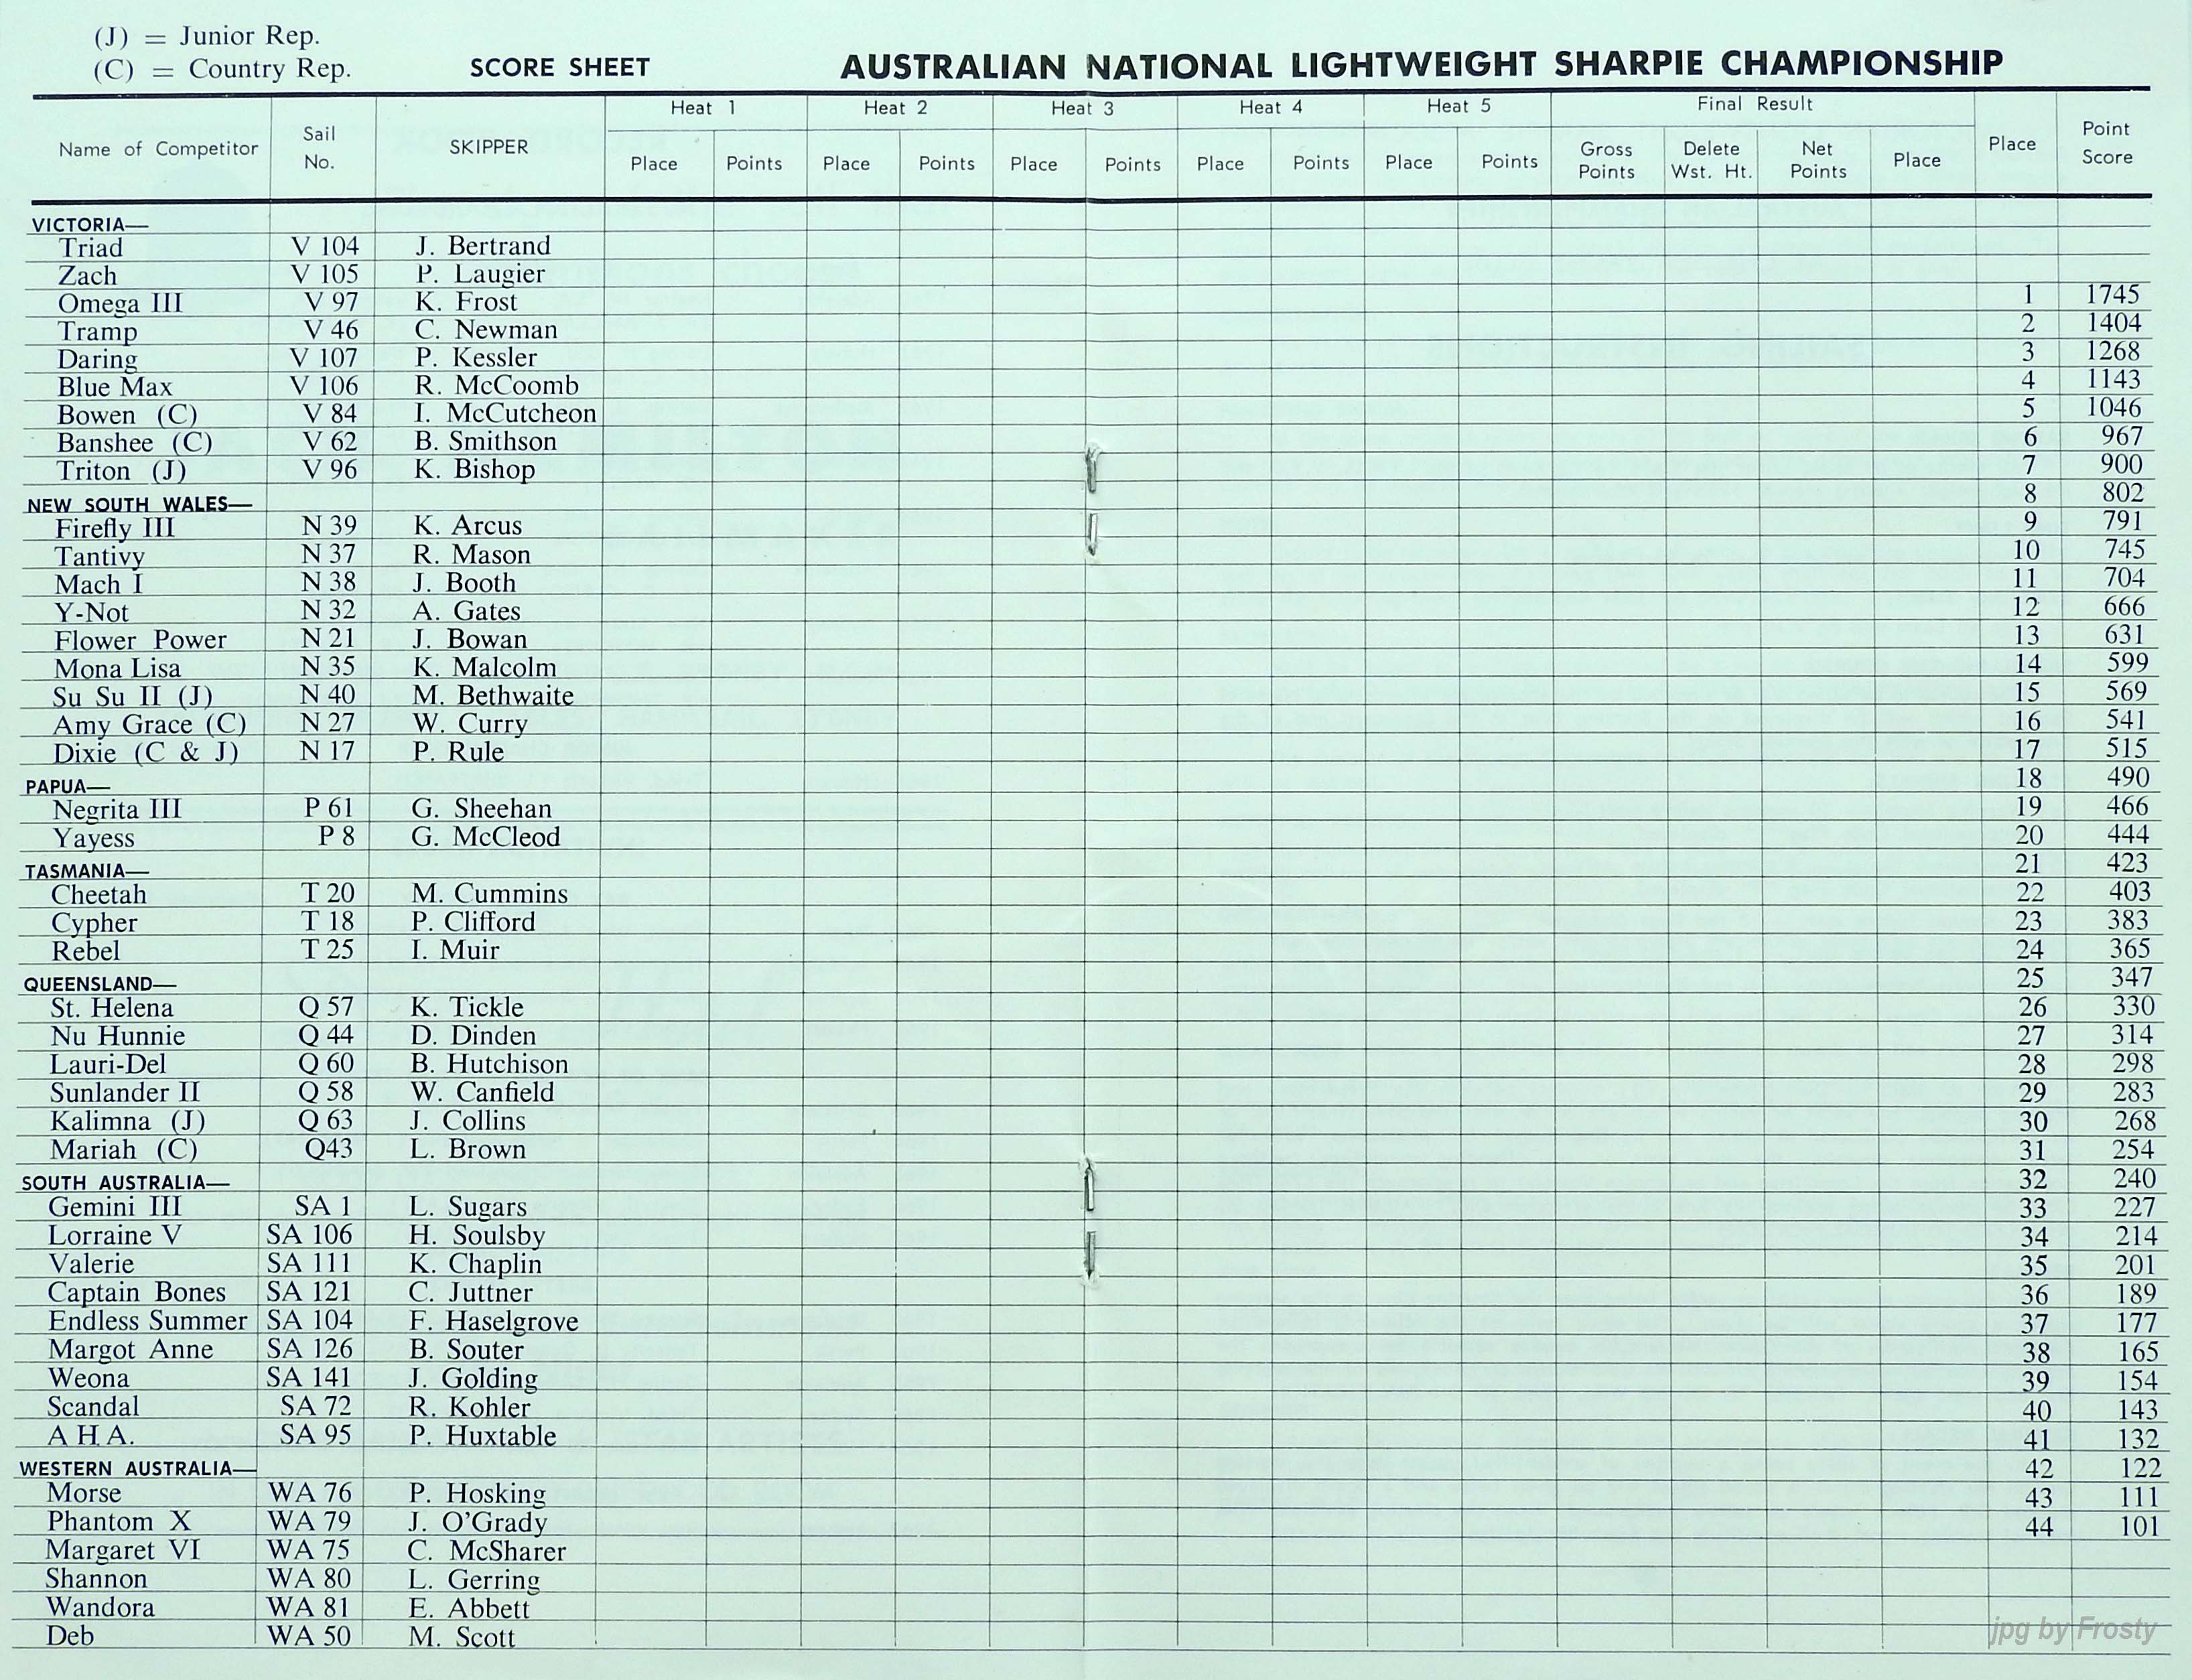 (J) = Junior Rep.
(C) = Country Rep. SCORE SHEET AUSTRALIAN NATIONAL LIGHTWEIGHT SHARPIE CHAMPIONSHIP
Heat 1 Heat 2 Heat 3 Heat 4 Heat 5 Final Result
Name of Competitor Sail No. SKIPPER Place Points Place Points Place Points Place Points Place Points Gross Points Delete Wst. Ht. Net Points Place Place Point Score
VICTORIA—
Triad V 104 J. Bertrand
Zach V 105 P. Laugier
Omega III V 97 K. Frost 1 1745
Tramp V 46 C. Newman 2 1404
Daring V 107 P. Kessler 3 1268
Blue Max V 106 R. McCoomb 4 1143
Bowen (C) V 84 I. McCutcheon 5 1046
Banshee (C) V 62 B. Smithson 6 967
Triton (J) V 96 K. Bishop 7 900
NEW SOUTH WALES— 8 802
Firefly III N 39 K. Arcus 9 791
Tantivy N 37 R. Mason 10 745
Mach I N 38 J. Booth 11 704
Y-Not N 32 A. Gates 12 666
Flower Power N 21 J. Bowan 13 631
Mona Lisa N 35 K. Malcolm 14 599
Su Su II (J) N 40 M. Bethwaite 15 569
Amy Grace (C) N 27 W. Curry 16 541
Dixie (C & J) N 17 P. Rule 17 515
PAPUA— 18 490
Negrita III P 61 G. Sheehan 19 466
Yayess P 8 G. McCleod 20 444
TASMANIA— 21 423
Cheetah T 20 M. Cummins 22 403
Cypher T 18 P. Clifford 23 383
Rebel T 25 I. Muir 24 365
QUEENSLAND— 25 347
St. Helena Q 57 K. Tickle 26 330
Nu Hunnie Q 44 D. Dinden 27 314
Lauri-Del Q 60 B. Hutchison 28 298
Sunlander II Q 58 W. Canfield 29 283
Kalimna (J) Q 63 J. Collins 30 268
Mariah (C) Q43 L. Brown 31 254
SOUTH AUSTRALIA— 32 240
Gemini III SA 1 L. Sugars 33 227
Lorraine V SA 106 H. Soulsby 34 214
Valerie SA 111 K. Chaplin 35 201
Captain Bones SA 121 C. Juttner 36 189
Endless Summer SA 104 F. Haselgrove 37 177
Margot Anne SA 126 B. Souter 38 165
Weona SA 141 J. Golding 39 154
Scandal SA 72 R. Kohler 40 143
A H.A. SA 95 P. Huxtable 41 132
WESTERN AUSTRALIA— 42 122
Morse WA 76 P. Hosking 43 111
Phantom X WA 79 J. O'Grady 44 101
Margaret VI WA 75 C. McSharer
Shannon WA 80 L. Gerring
Wandora WA 81 E. Abbett
Deb WA 50 M. Scott
jpg by Frosty